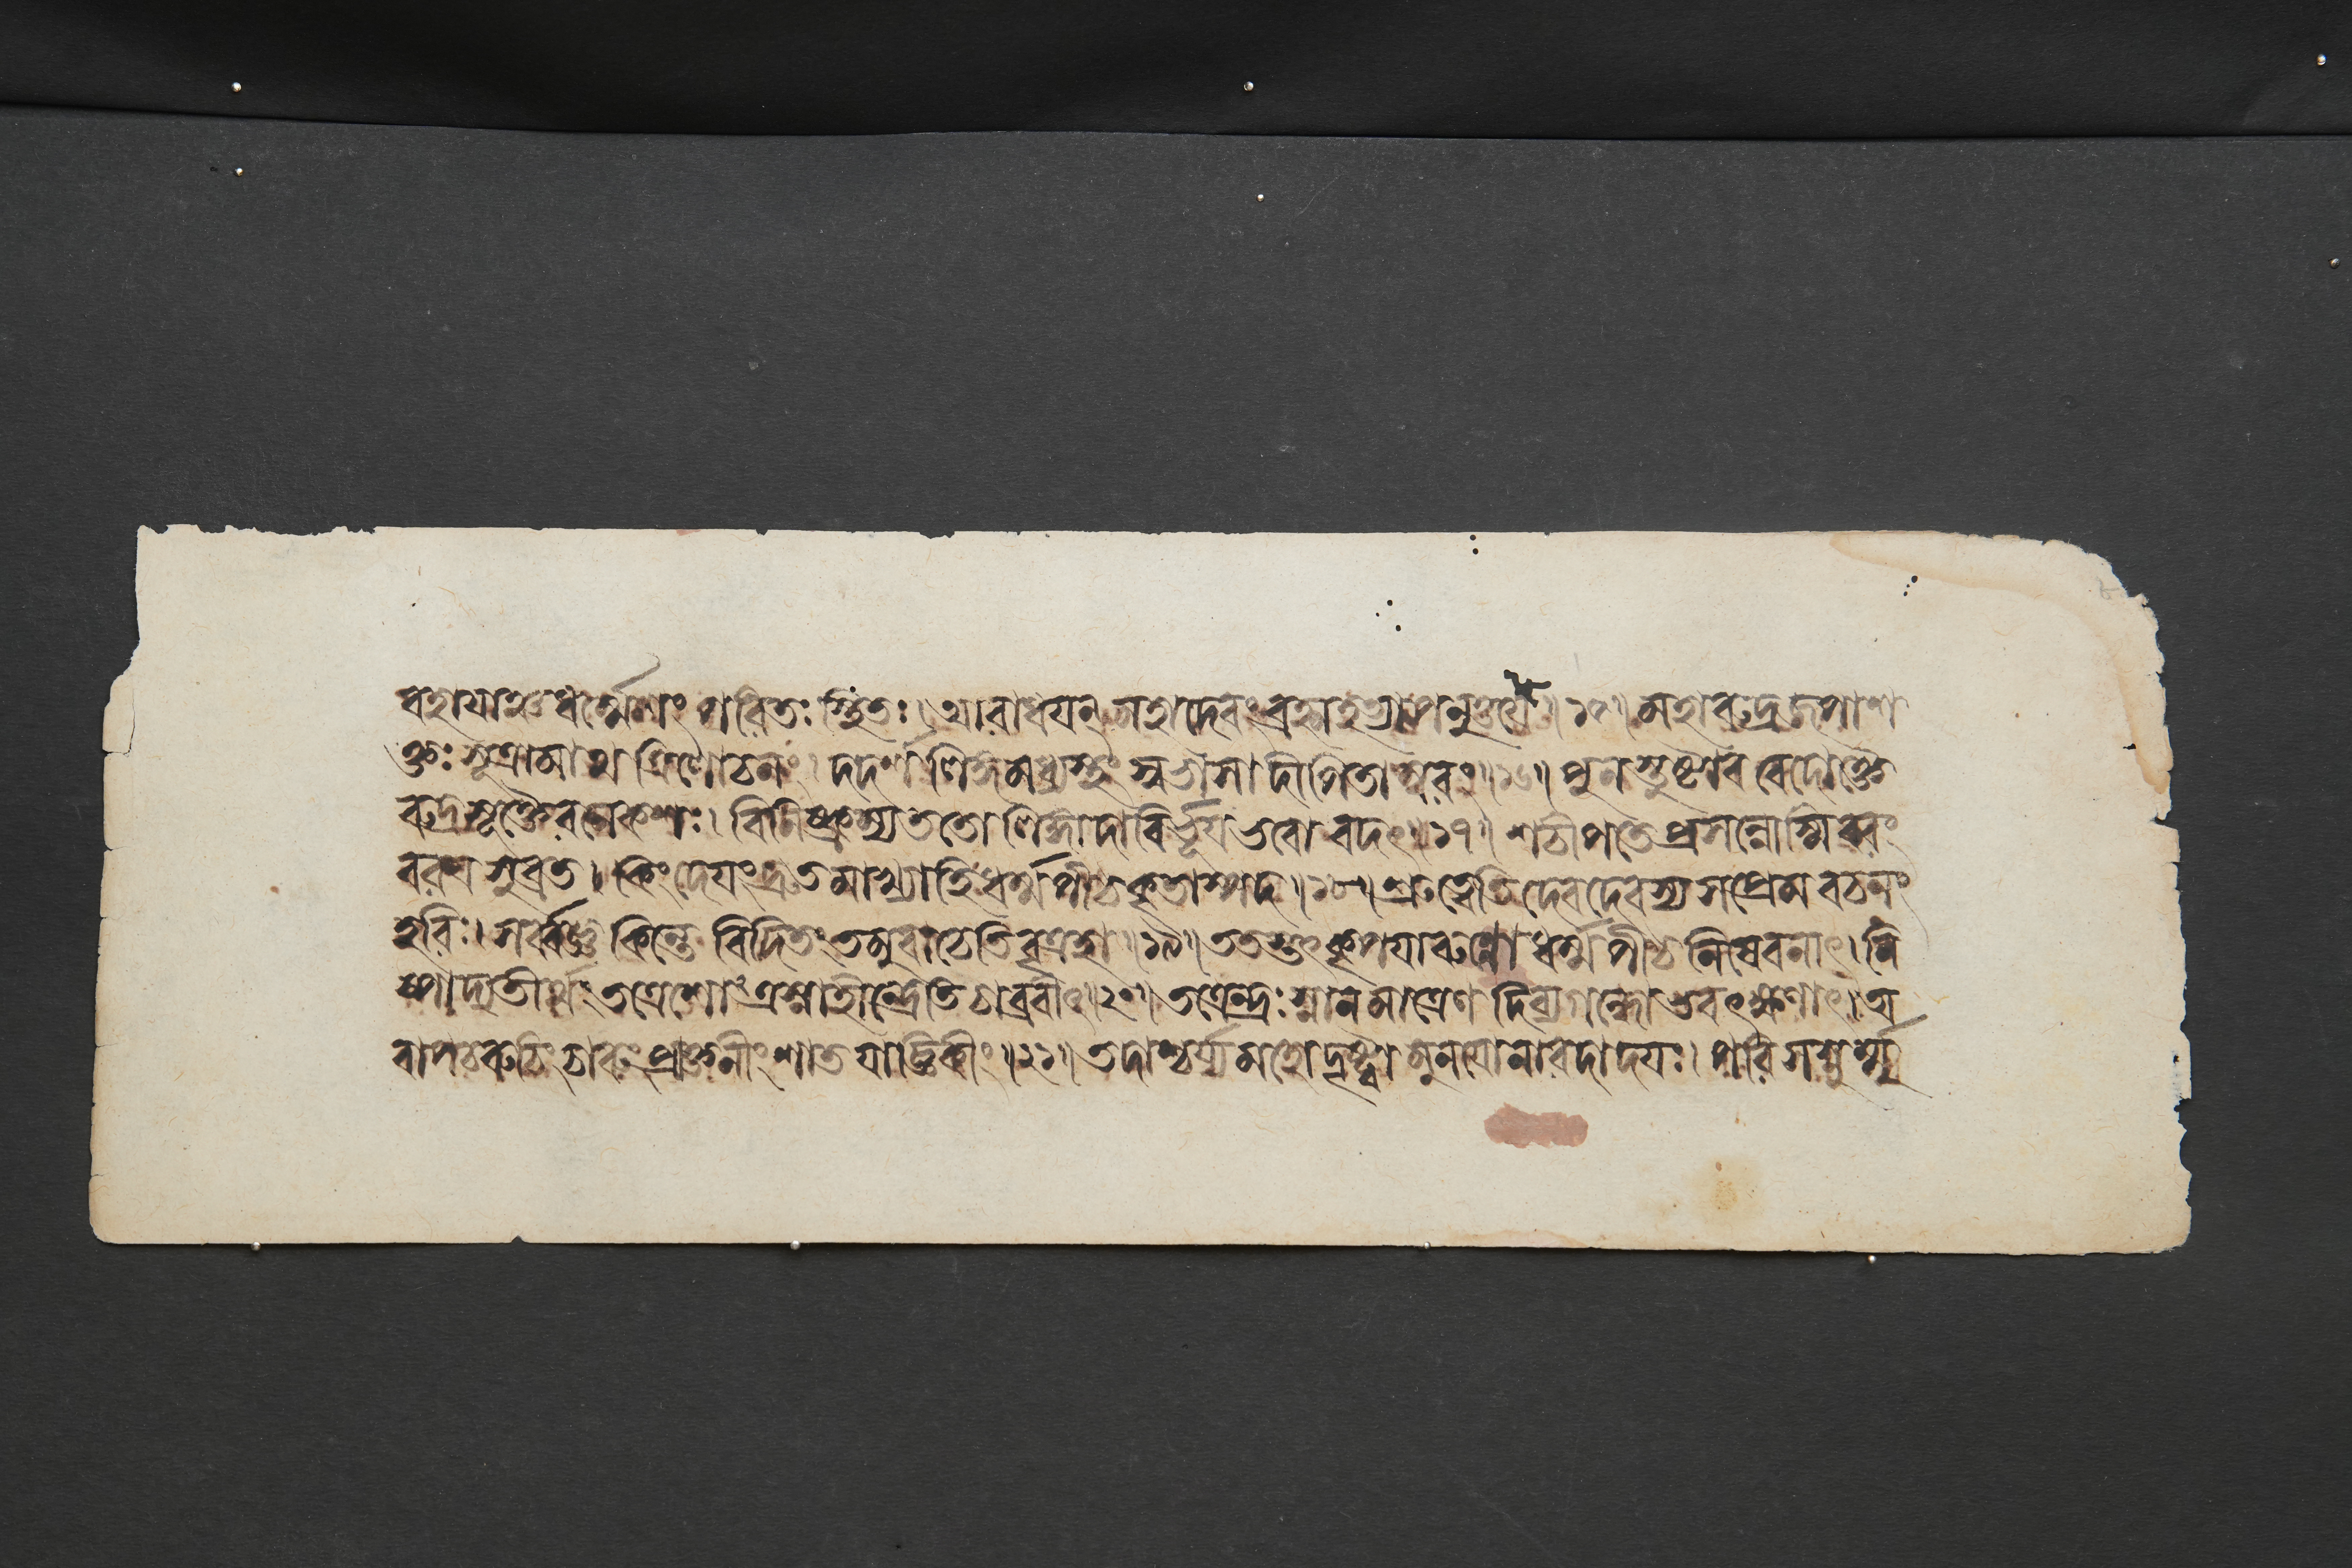 ৰহাযাঞ্চধর্ম্মেশং পরিতঃ স্থিতঃ। আরাধযন্ মহাদেবং ব্রহ্মহত্যাপনুত্তযে॥১৫॥ মহারুদ্রজপাশ
ক্তঃ সুত্রামাথ ত্রিলোচনং। দদর্শ লিঙ্গমধ্যস্থং স্বভাসা দীপিতাম্বরং॥১৬॥ পুনস্তুষ্টাব বেদোক্তৈ
রুদ্রসূক্তৈরনেকশঃ। বিনিষ্ক্রম্য ততো লিঙ্গাদাবির্ভূয ভবো বদৎ॥১৭॥ শচীপতে প্রসন্নোস্মি বরং
বরয সুব্রত। কিংদেযং দ্রুতমাখ্যাহি ধর্ম্মপীঠকৃতাস্পদ॥১৮॥ শ্রুত্বেতি দেবদেবস্য সপ্রেমবচনং
হরিঃ। সর্ব্বজ্ঞ কিন্তে বিদিতং তমুবাচেতি বৃত্রহা॥১৯॥ ততস্তৎকৃপযা রুদ্রো ধর্ম্মপীঠনিষেবনাৎ। নি
ষ্পাদ্য তীর্থং তত্রেশোঽত্র স্নাহীন্দ্রেতি চাব্রবীৎ॥২০॥ তত্রেন্দ্রঃ স্নানমাত্রেণ দিব্যগন্ধোভবৎক্ষণাৎ। অ
বাপ চ রুচিং চারুং প্রাক্তনীং শাতযাজ্ঞিকীং॥২১॥ তদাশ্চর্য্যমহো দৃষ্ট্বা মুনযো নারদাদযঃ। পরিসস্নুর্ম্মু